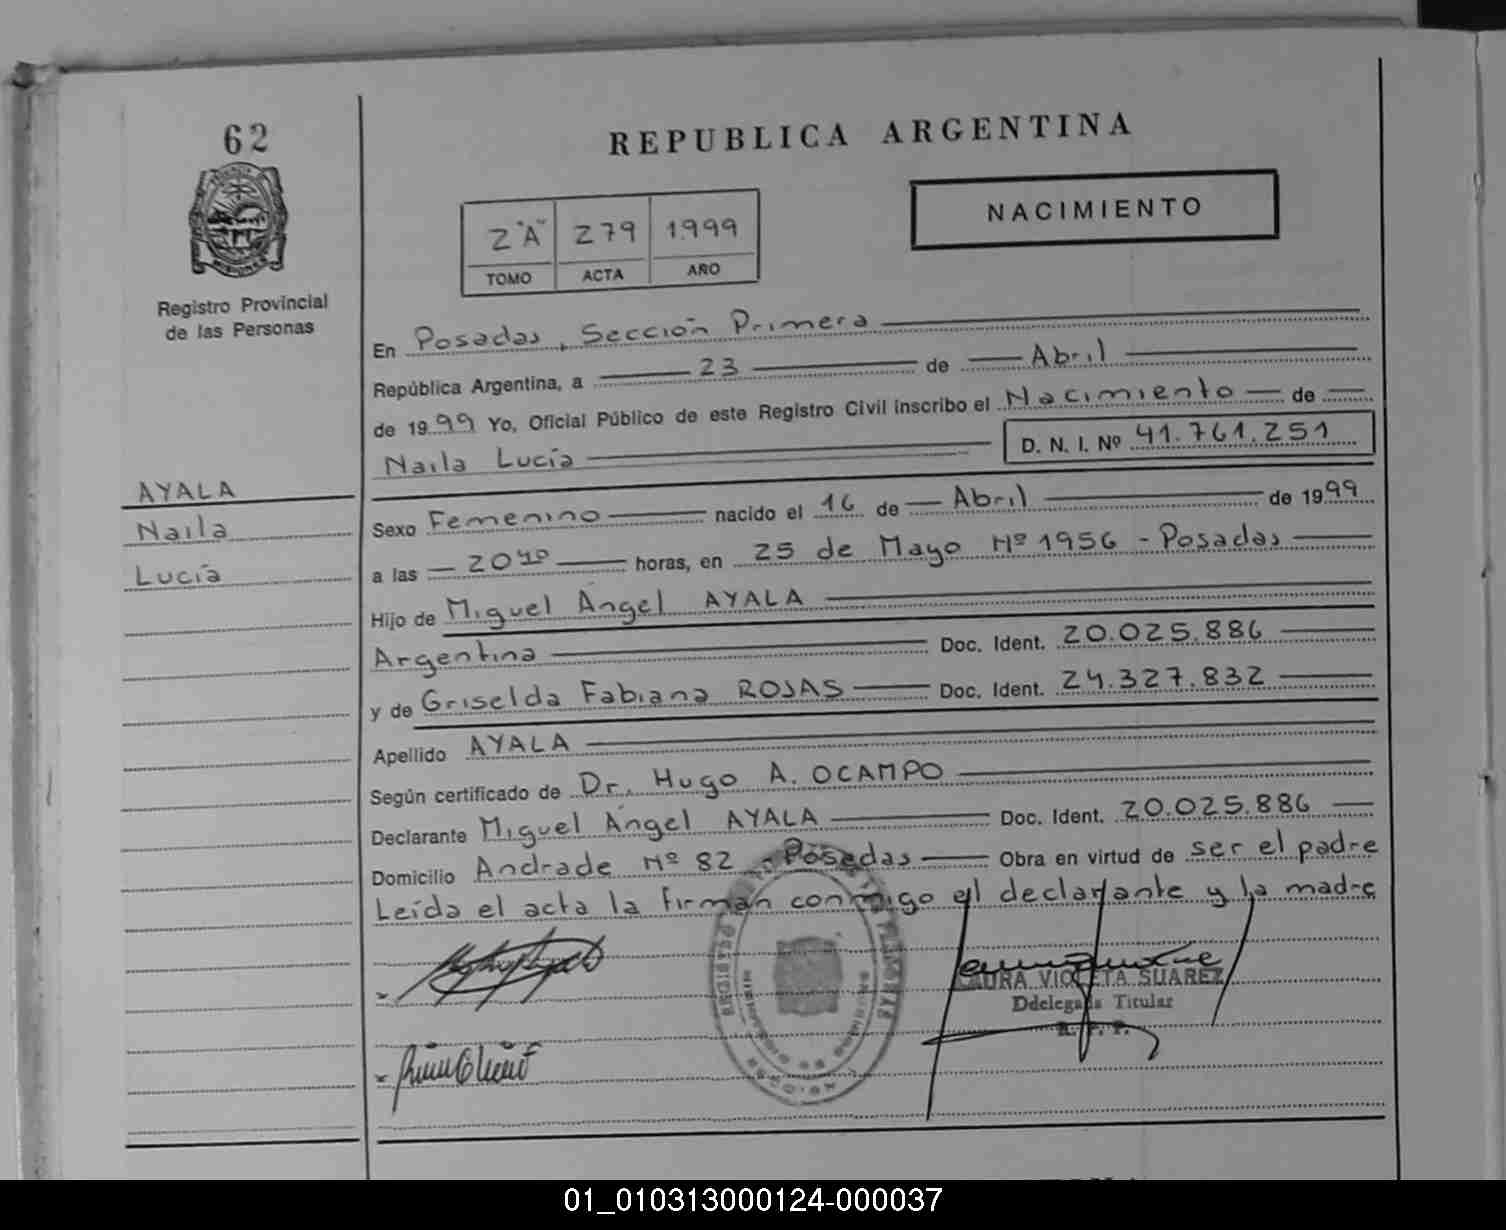 62
REPUBLICA ARGENTINA
NACIMIENTO
2 "A" 279 1999
TOMO ACTA AÑO
Registro Provincial
de las Personas
En Posadas, Sección Primera
República Argentina, a 23 de Abril
de 1999 Yo, Oficial Público de este Registro Civil inscribo el Nacimiento de
Naila Lucía D. N. I. Nº 41.761.251
AYALA
Naila
Lucía
Sexo Femenino nacido el 16 de Abril de 1999
a las 20 10 horas, en 25 de Mayo Nº 1956 - Posadas
Hijo de Miguel Ángel AYALA
Argentina Doc. Ident. 20.025.886
y de Griselda Fabiana ROJAS Doc. Ident. 24.327.832
Apellido AYALA
Según certificado de Dr. Hugo A. OCAMPO
Declarante Miguel Ángel AYALA Doc. Ident. 20.025.886
Domicilio Andrade Nº 82 - Posadas Obra en virtud de ser el padre
Leída el acta la firman conmigo el declarante y la madre
LAURA VIOLETA SUAREZ
Ddelegada Titular
R. P. P.
01_010313000124-000037